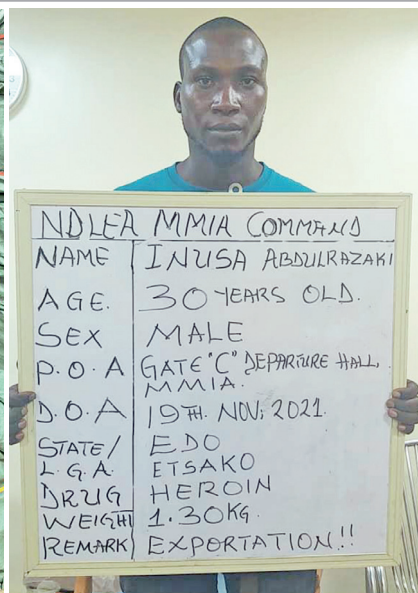 NDLEA MMIA COMMAND
NAME INUSA ABDULRAZAKI
AGE. 30 YEARS OLD.
SEX MALE
P.O.A GATE "C" DEPARTURE HALL,
MMIA.
D.O.A 19TH. NOV; 2021.
STATE/ EDO
L.G.A. ETSAKO
DRUG HEROIN
WEIGHT 1.30KG.
REMARK EXPORTATION!!